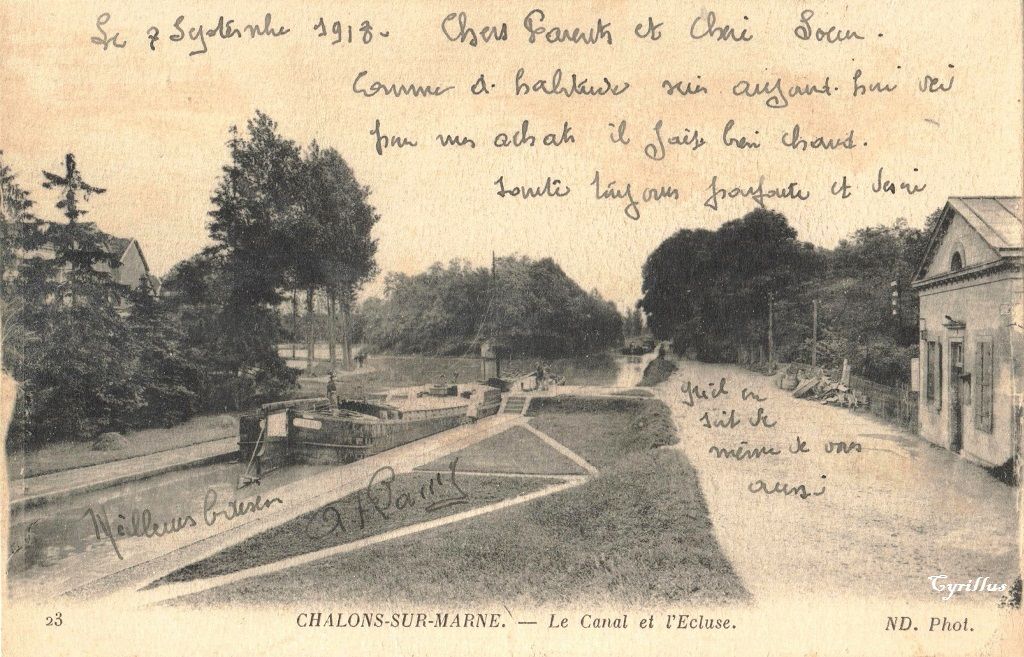 Le 7 Septembre 1918. Chers Parents et Cheri Soeur.
Comme d habitude suis aujourd hui ici
pour mes achats il fait bien chaud.
Santé toujours parfaite et desire
quil en
soit de
même de vous
aussi
Meilleurs baisers
Cyrillus
23 CHALONS-SUR-MARNE. — Le Canal et l'Ecluse. ND. Phot.